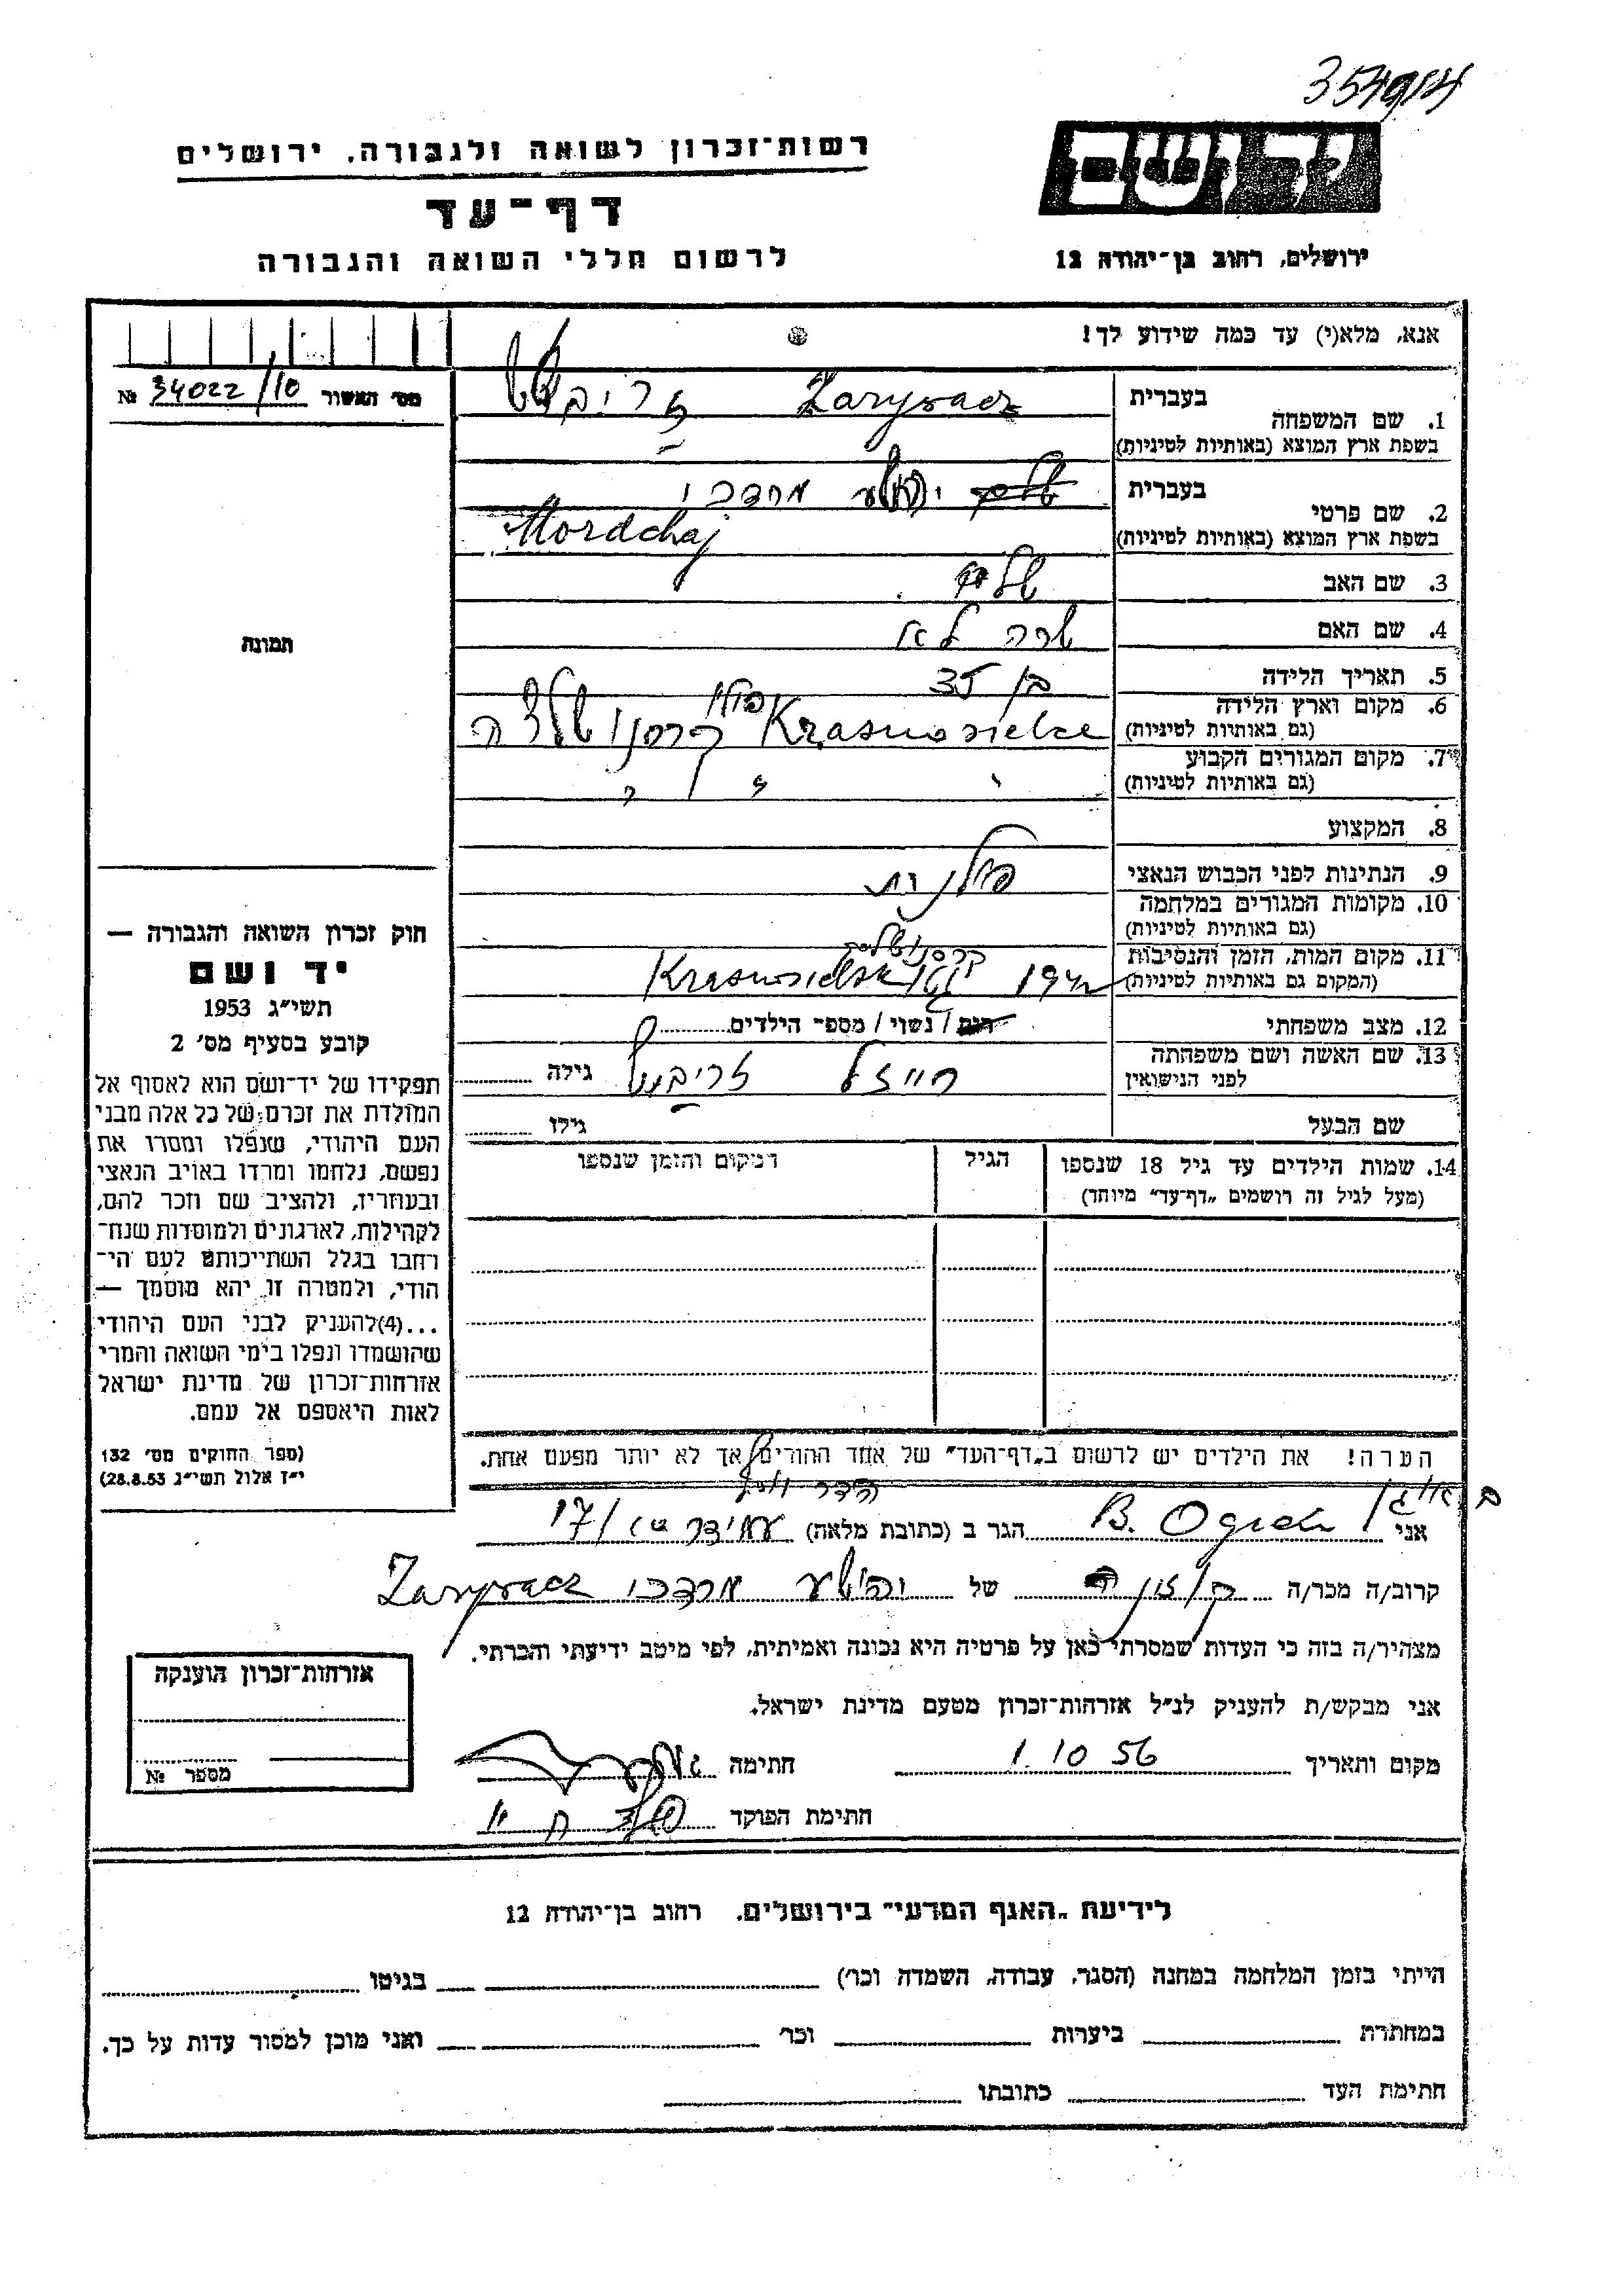 354914
ידושם
רשות־זכרון לשואה ולגבורה, ירושלים
דף־עד
לרשום חללי השואה והגבורה
ירושלים, רחוב בן־יהודה 12
אנא, מלא(י) עד כמה שידוע לך!
מס׳ האשור 34022/10 №
1. שם המשפחה
בעברית Zaryvacz
בשפת ארץ המוצא (באותיות לטיניות)
2. שם פרטי
בעברית יהושע מרדכי
בשפת ארץ המוצא (באותיות לטיניות) Mordchaj
3. שם האב
4. שם האם שרה לאה
תמונה
5. תאריך הלידה בן 35
6. מקום וארץ הלידה פולין
(גם באותיות לטיניות) Krasnosielce
7. מקום המגורים הקבוע
(גם באותיות לטיניות) " " "
8. המקצוע
9. הנתינות לפני הכבוש הנאצי פולנית
10. מקומות המגורים במלחמה
(גם באותיות לטיניות)
11. מקום המות, הזמן והנסיבות
(המקום גם באותיות לטיניות)
12. מצב משפחתי רווק / נשוי / מספר הילדים
13. שם האשה ושם משפחתה
לפני הנישואין גילה
שם הבעל גילו
14. שמות הילדים עד גיל 18 שנספו הגיל המקום והזמן שנספו
(מעל לגיל זה רושמים „דף־עד״ מיוחד)
הערה! את הילדים יש לרשום ב„דף־העד״ של אחד ההורים אך לא יותר מפעם אחת.
חוק זכרון השואה והגבורה —
יד ושם
תשי״ג 1953
קובע בסעיף מס׳ 2
תפקידו של יד־ושם הוא לאסוף אל
המולדת את זכרם של כל אלה מבני
העם היהודי, שנפלו ומסרו את
נפשם, נלחמו ומרדו באויב הנאצי
ובעוזריו, ולהציב שם וזכר להם,
לקהילות, לארגונים ולמוסדות שנח־
רחבו בגלל השתייכותם לעם הי־
הודי, ולמטרה זו יהא מוסמך —
...(4)להעניק לבני העם היהודי
שהושמדו ונפלו בימי השואה והמרי
אזרחות־זכרון של מדינת ישראל
לאות היאספם אל עמם.
(ספר החוקים מס׳ 132
י״ז אלול תשי״ג 28.8.53)
אני B. Ogrod הגר ב (כתובת מלאה) 17/
קרוב/ה מכר/ה של יהושע מרדכי Zaryvacz
מצהיר/ה בזה כי העדות שמסרתי כאן על פרטיה היא נכונה ואמיתית, לפי מיטב ידיעתי והכרתי.
אני מבקש/ת להעניק לנ״ל אזרחות־זכרון מטעם מדינת ישראל.
מקום ותאריך 1.10 56 חתימה
חתימת הפוקד
אזרחות־זכרון הוענקה
מספר №
לידיעת „האגף המדעי״ בירושלים, רחוב בן־יהודה 12
הייתי בזמן המלחמה במחנה (הסגר, עבודה, השמדה וכו׳) בגיטו
במחתרת ביערות וכו׳ ואני מוכן למסור עדות על כך.
חתימת העד כתובתו